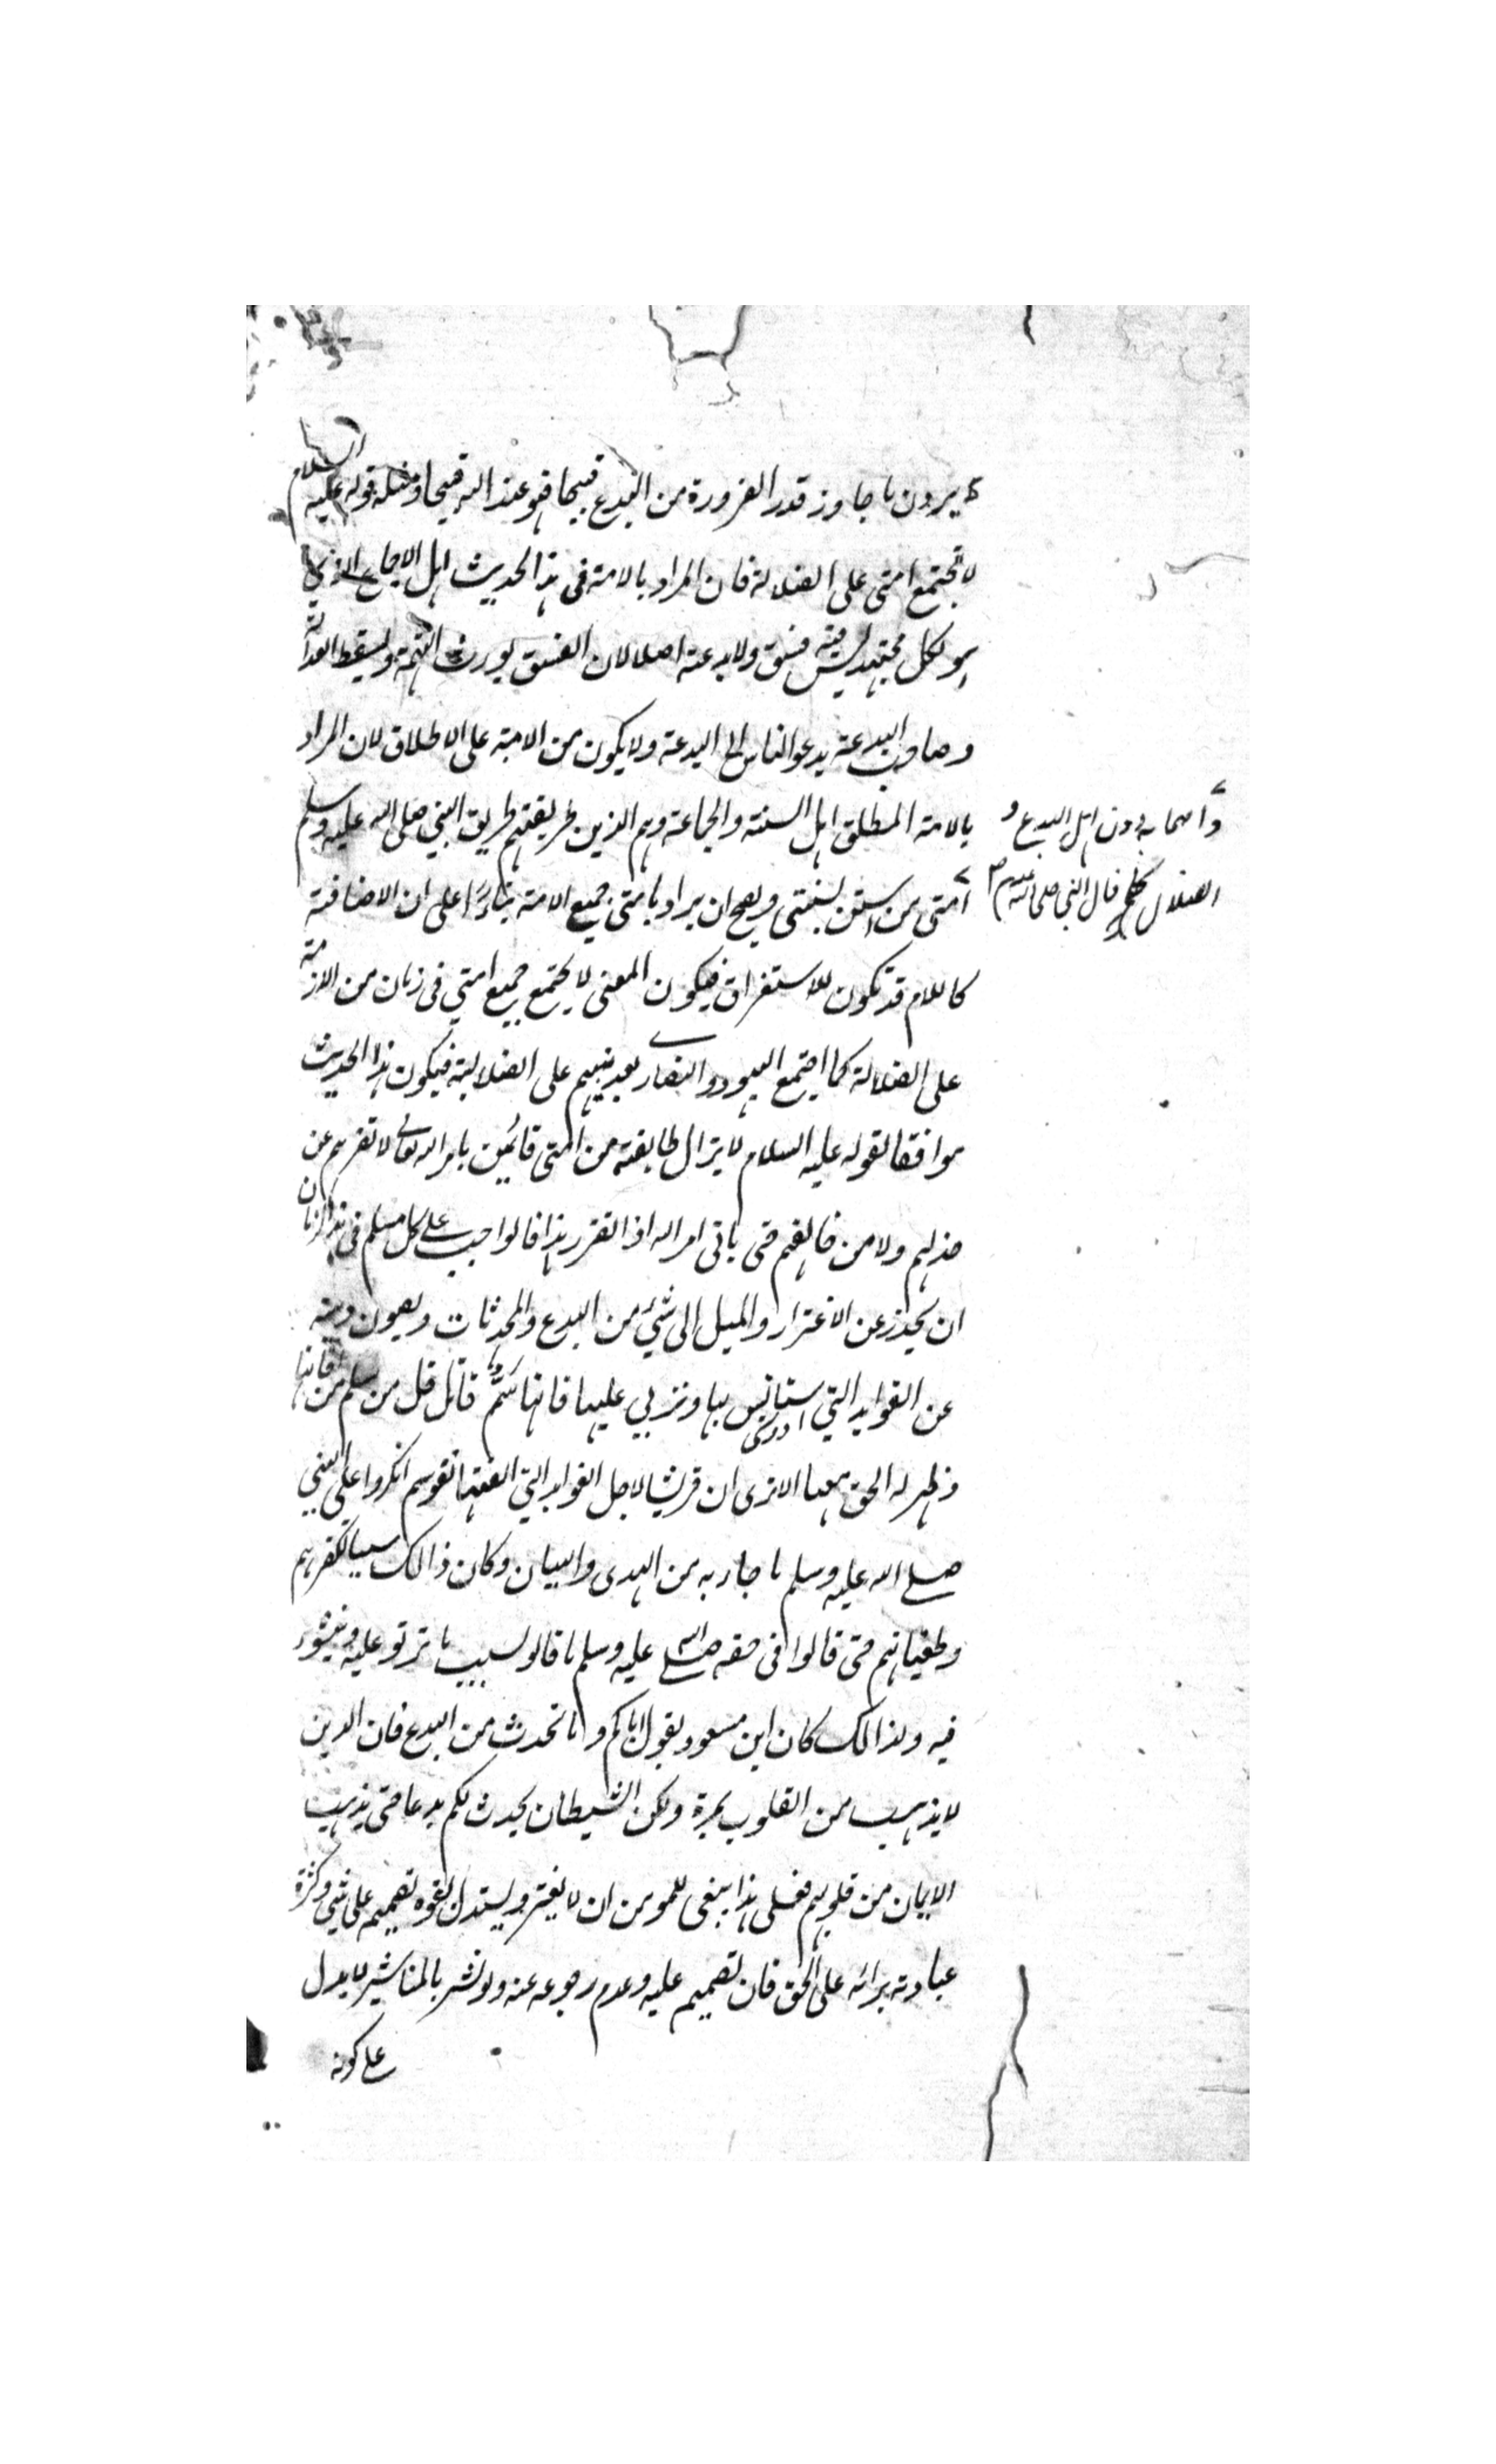 يرون ما جاوز قدر الضرورة من البدع قبيحا فهو عند الله قبيحا ومثله قوله عليه السلام
لا تجتمع امتى على الضلالة فان المراد بالامة فى هذا الحديث اهل الاجماع الذى
هو لكل مجتهد ليس فيه فسق ولا بدعة اصلا لان الفسق يورث التهمة ويسقط العدالة
وصاحب البدعة يدعو الناس الى البدعة ولا يكون من الامة على الاطلاق لان المراد
بالامة المطلق اهل السنة والجماعة وهم الذين طريقتهم طريق النبي صلى الله عليه وسلم
واصحابه دون اهل البدع و
الضلال كلهم قال النبى صلى الله عليه وسلم
امتى من استن بسنتى ويصح ان يراد بامتى جميع الامة بناءً على ان الاضافة
كاللام قد تكون للاستغراق فيكون المعنى لا يجتمع جميع امتي فى زمان من الازمنة
على الضلالة كما اجتمع اليهود والنصارے بعد نبيهم على الضلالية فيكون هذا الحديث
موافقا لقوله عليه السلام لا يزال طايفة من امتى قائمين بامر الله تعالى لا تضرهم عن
خذلهم ولا من خالفهم حتى ياتى امر الله اذا تقرر هذا فالواجب على كل مسلم فى هذا الزمان
ان يحذر عن الاغترار والميل الى شيئ من البدع والمحدثات ويصون دينه
عن الفوايد التي استانس بها وتربي عليها فانها سَمٌّ قاتل قل من سلم من فاتها
وظهر له الحق معها الا ترى ان قريشا لاجل الفوايد التي الفتها نفوسهم انكروا على النبي
صلى الله عليه وسلم ما جاء به من الهدى والبيان وكان ذالك سببا لكفرهم
وطغيانهم حتى قالوا فى حقه صلى الله عليه وسلم ما قالو لسبب ما تربو عليه ونيشوء
فيه ولذالك كان ابن مسعود يقول اياكم وما تحدث من البدع فان الدين
لا يذهب من القلوب بمرة ولكن الشيطان يحدث لكم بدعا حتى يذهب
الايمان من قلوبهم فعلى هذا ينبغى للمومن ان لا يغتر ويستدل بقوه تصميم على شئ وكثرة
عبادته برائه على الحق فان تصميم عليه وعدم رجوعه عنه ولو نشر بالمناشير لا يدل
على كونه